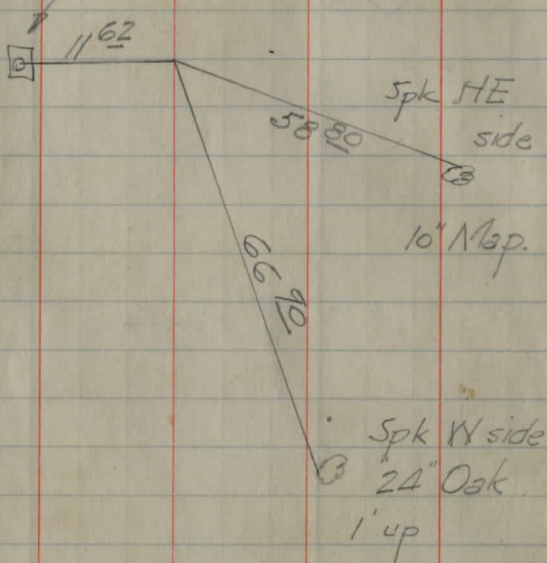 11 62
58 80
Spk NE
side
10" Map.
66 90
Spk W side
24" Oak
1' up